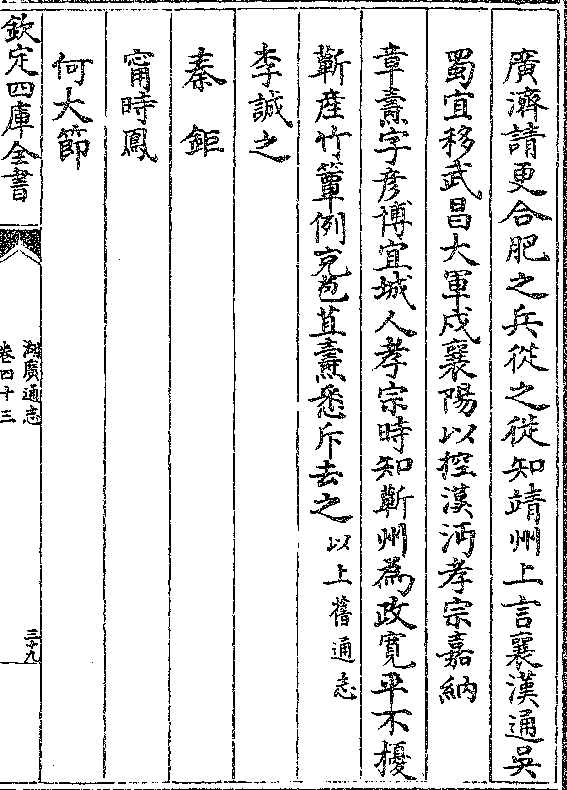 廣濟請更合肥之兵從之徙知靖州上言襄漢通吳
蜀宜移武昌大軍戍襄陽以控漢沔孝宗嘉納
章燾字彦博宜城人孝宗時知蘄州為政寛平不擾
蘄產竹簟例充苞苴燾悉斥去之以上舊通志
李誠之
秦鉅
甯時鳳
何大節
欽定四庫全書
湖廣通志
卷四十三
三十九